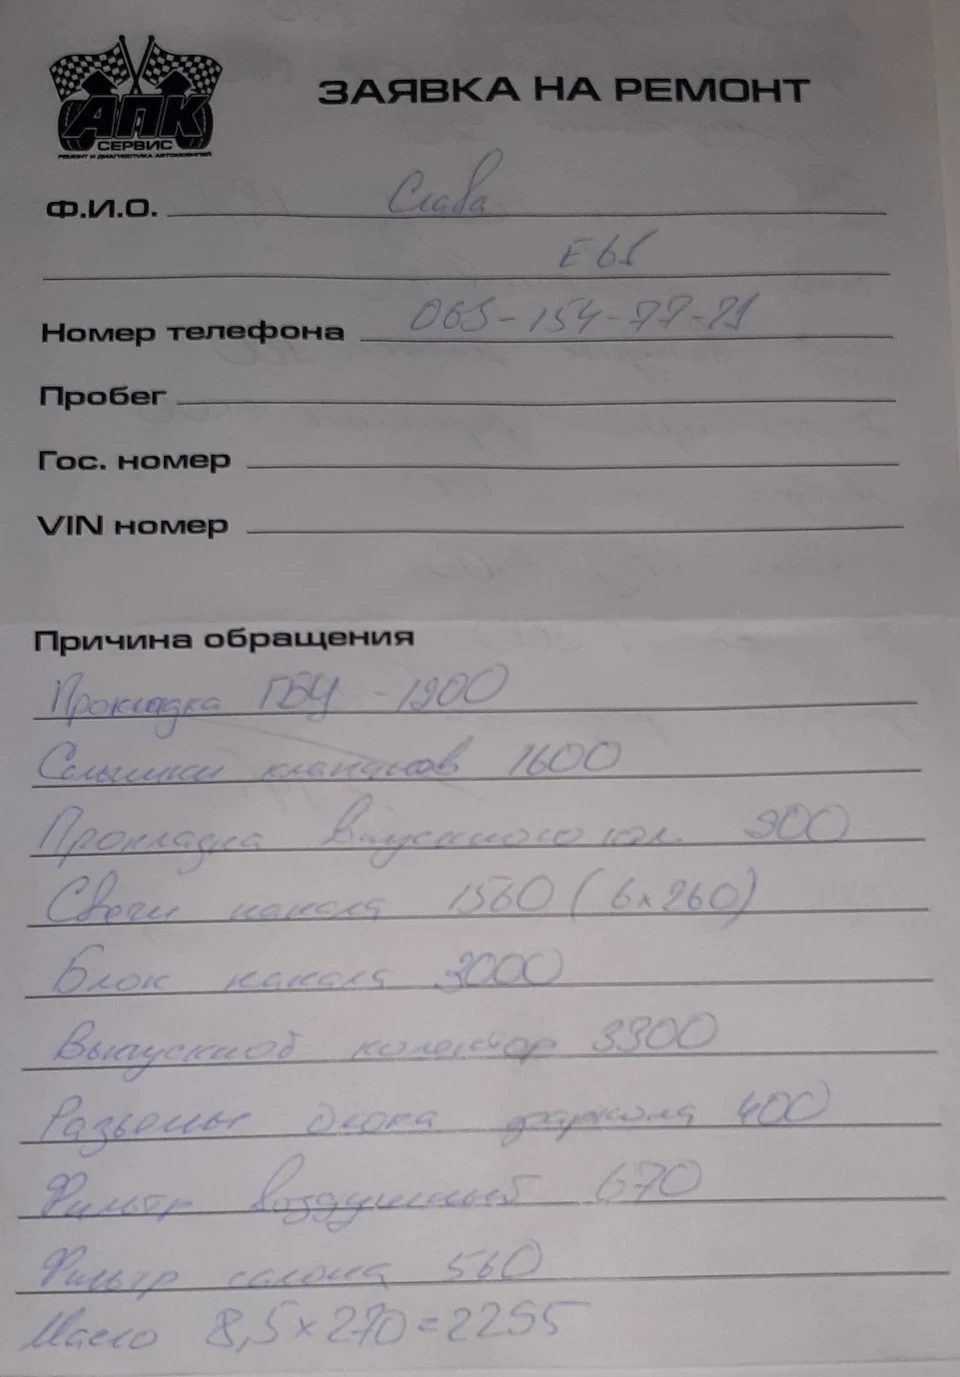 АПК
СЕРВИС
РЕМОНТ И ДИАГНОСТИКА АВТОМОБИЛЕЙ
ЗАЯВКА НА РЕМОНТ
Ф.И.О. Слава
E61
Номер телефона 063-154-77-21
Пробег
Гос. номер
VIN номер
Причина обращения
Прокладка ГБЦ - 1200
Сальники клапанов 1600
Прокладка впускного кол. 900
Свечи накала 1560 (6x260)
Блок накала 3000
Выпускной колектор 3300
Разьемы блока 400
Фильтр воздушный 670
Фильтр салона 560
Масло 8,5x270=2295